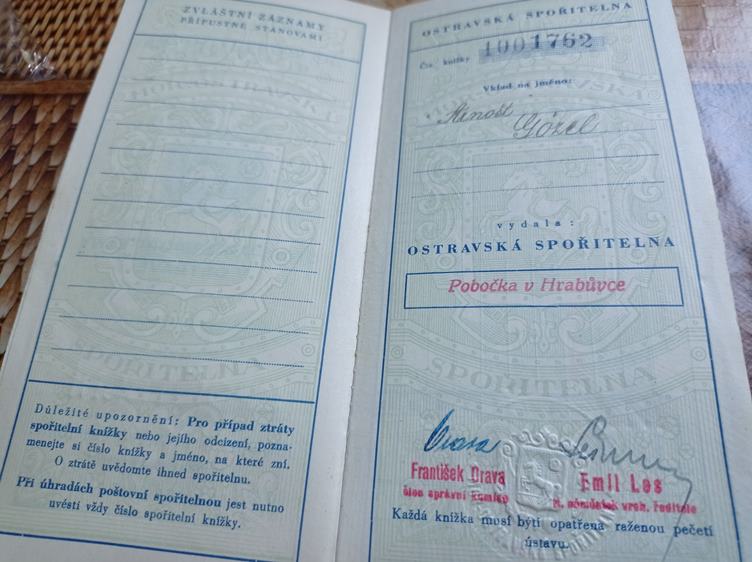 ZVLÁŠTNÍ ZÁZNAMY
PŘÍPUSTNÉ STANOVAMI
Důležité upozornění: Pro případ ztráty
spořitelní knížky nebo jejího odcizení, pozna-
menejte si číslo knížky a jméno, na které zní.
O ztrátě uvědomte ihned spořitelnu.
Při úhradách poštovní spořitelnou jest nutno
uvésti vždy číslo spořitelní knížky.
OSTRAVSKÁ SPOŘITELNA
Čís. knížky 1001762
Vklad na jméno:
Arnošt
Gózel
vydala:
OSTRAVSKÁ SPOŘITELNA
Pobočka v Hrabůvce
SPOŘITELNA
František Orava
člen správní komise
Emil Les
n. náměstek vrch. ředitele
Každá kniha musí býti opatřena raženou pečetí
ústavu.